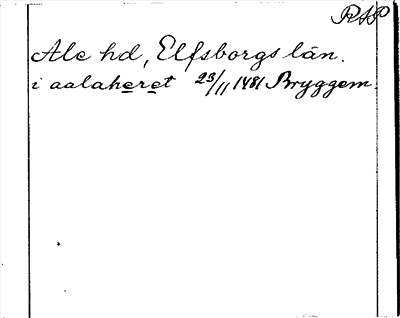 RAP
Ale hd, Elfsborgs län.
i aalaheret 23/11 1481 Bryggem.